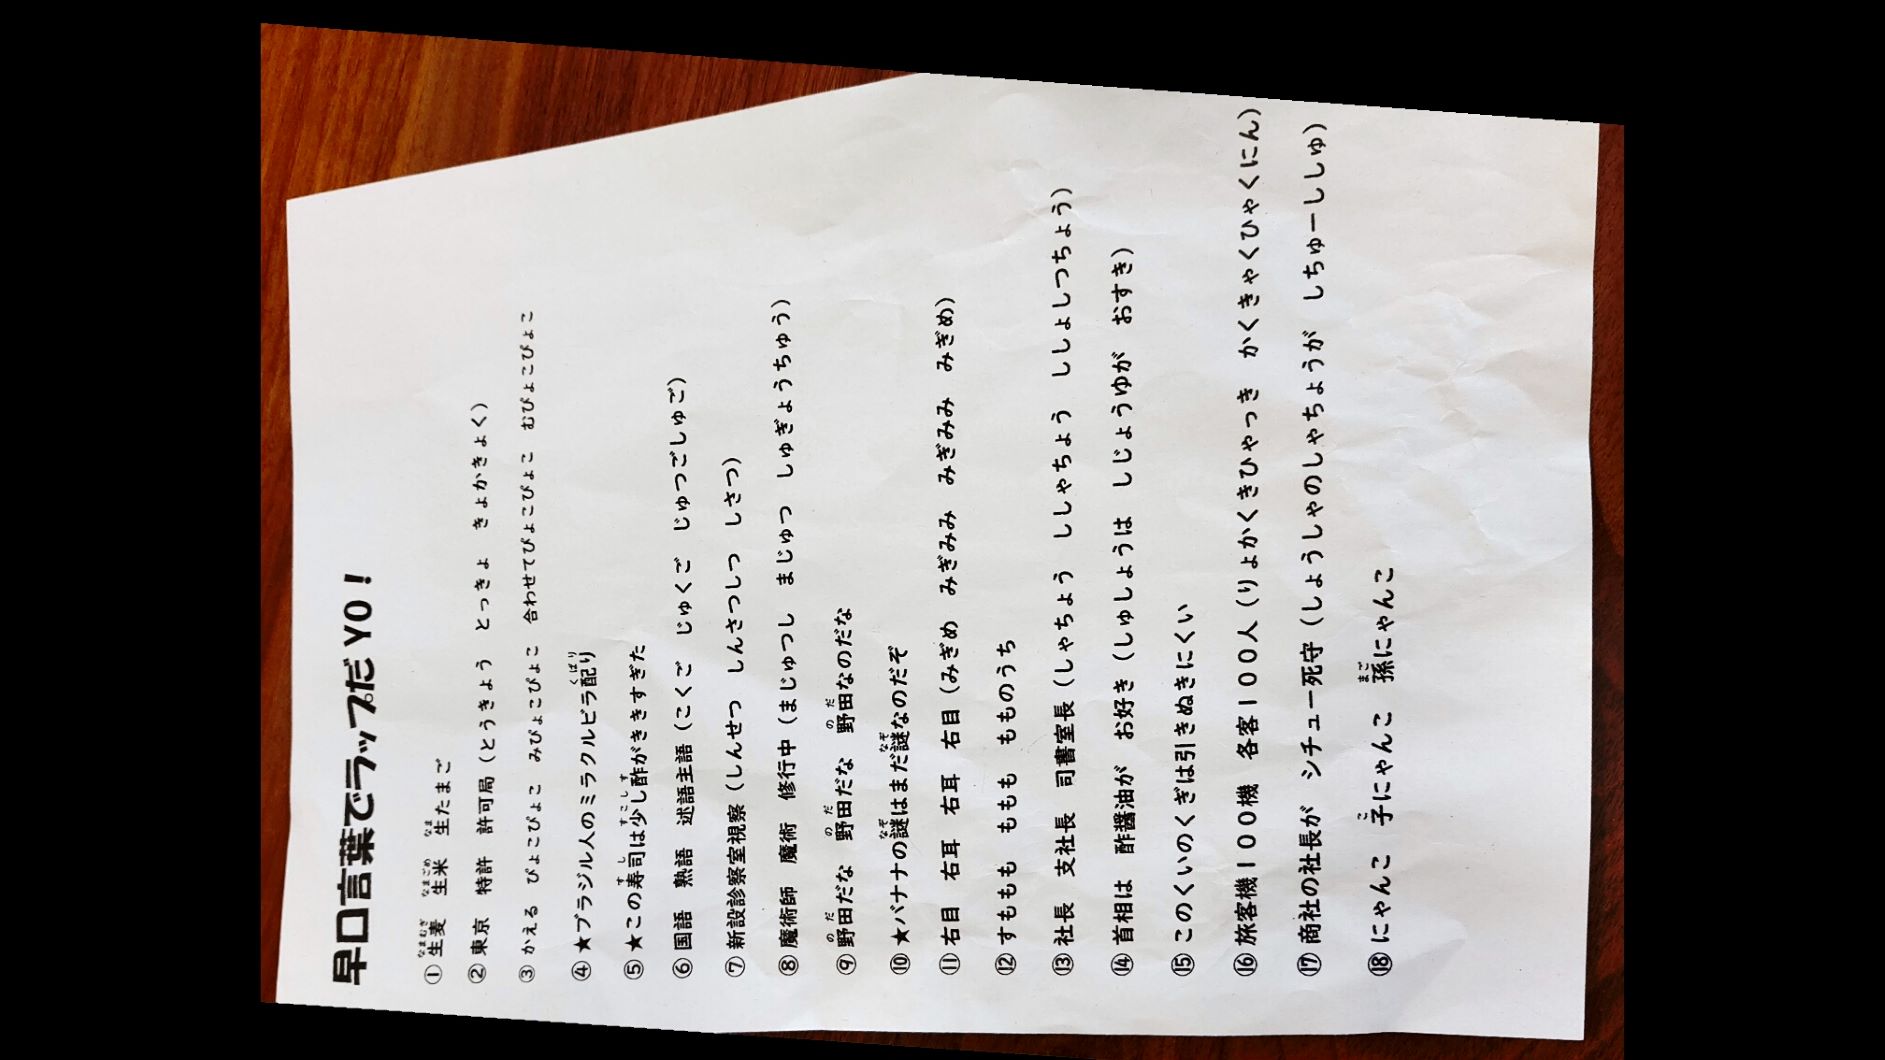 早口言葉でラップだ YO！
① 生麦 生米 生たまご
② 東京 特許 許可局（とうきょう とっきょ きょかきょく）
③ かえる ぴょこぴょこ みぴょこぴょこ 合わせてぴょこぴょこ むぴょこぴょこ
④ ★ブラジル人のミラクルビラ配り
⑤ ★この寿司は少し酢がききすぎた
⑥ 国語 熟語 述語主語（こくご じゅくご じゅつごしゅご）
⑦ 新設診察室視察（しんせつ しんさつしつ しさつ）
⑧ 魔術師 魔術 修行中（まじゅつし まじゅつ しゅぎょうちゅう）
⑨ 野田だな 野田だな 野田なのだな
⑩ ★バナナの謎はまだ謎なのだぞ
⑪ 右目 右耳 右耳 右目（みぎめ みぎみみ みぎみみ みぎめ）
⑫ すももも ももも もものうち
⑬ 社長 支社長 司書室長（しゃちょう ししゃちょう ししょしつちょう）
⑭ 首相は 酢醤油が お好き（しゅしょうは しじょうゆが おすき）
⑮ このくいのくぎは引きぬきにくい
⑯ 旅客機１００機 各客１００人（りょかくきひゃっき かくきゃくひゃくにん）
⑰ 商社の社長が シチュー死守（しょうしゃのしゃちょうが しちゅーししゅ）
⑱ にゃんこ 子にゃんこ 孫にゃんこ